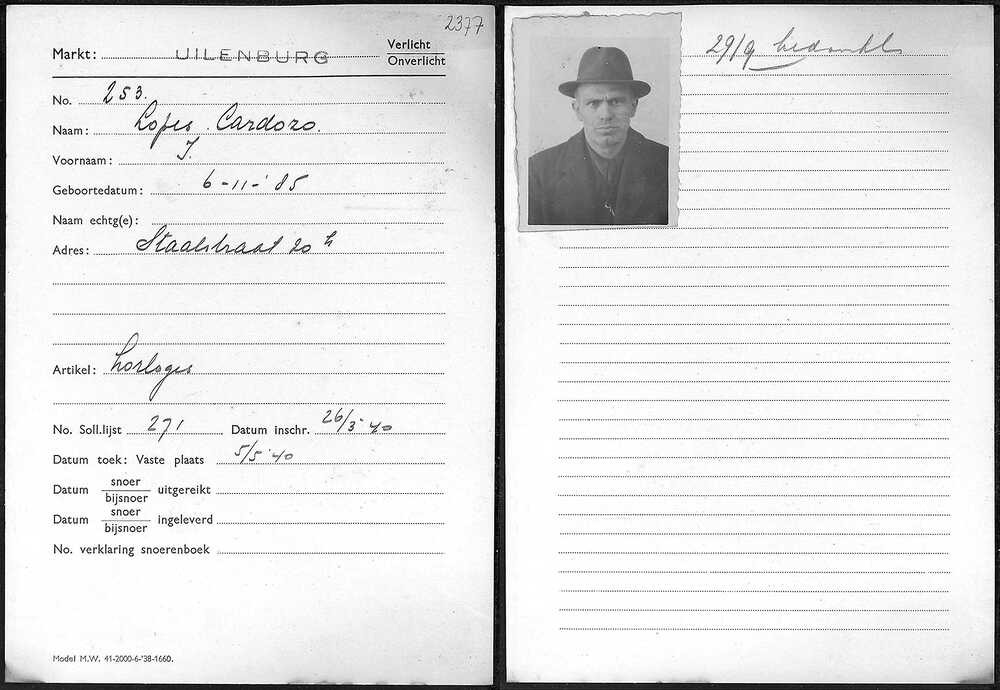 2377
Markt: UILENBURG Verlicht
Onverlicht
No. 253.
Naam: Lopes Cardozo.
Voornaam: I.
Geboortedatum: 6-11-'85
Naam echtg(e):
Adres: Staalstraat 20 h
Artikel: horloges
No. Soll.lijst 271 Datum inschr. 26/3-'40
Datum toek: Vaste plaats 5/5-'40
Datum snoer
bijsnoer uitgereikt
Datum snoer
bijsnoer ingeleverd
No. verklaring snoerenboek
Model M.W. 41-2000-6-'38-1660.
29/9 bedankt